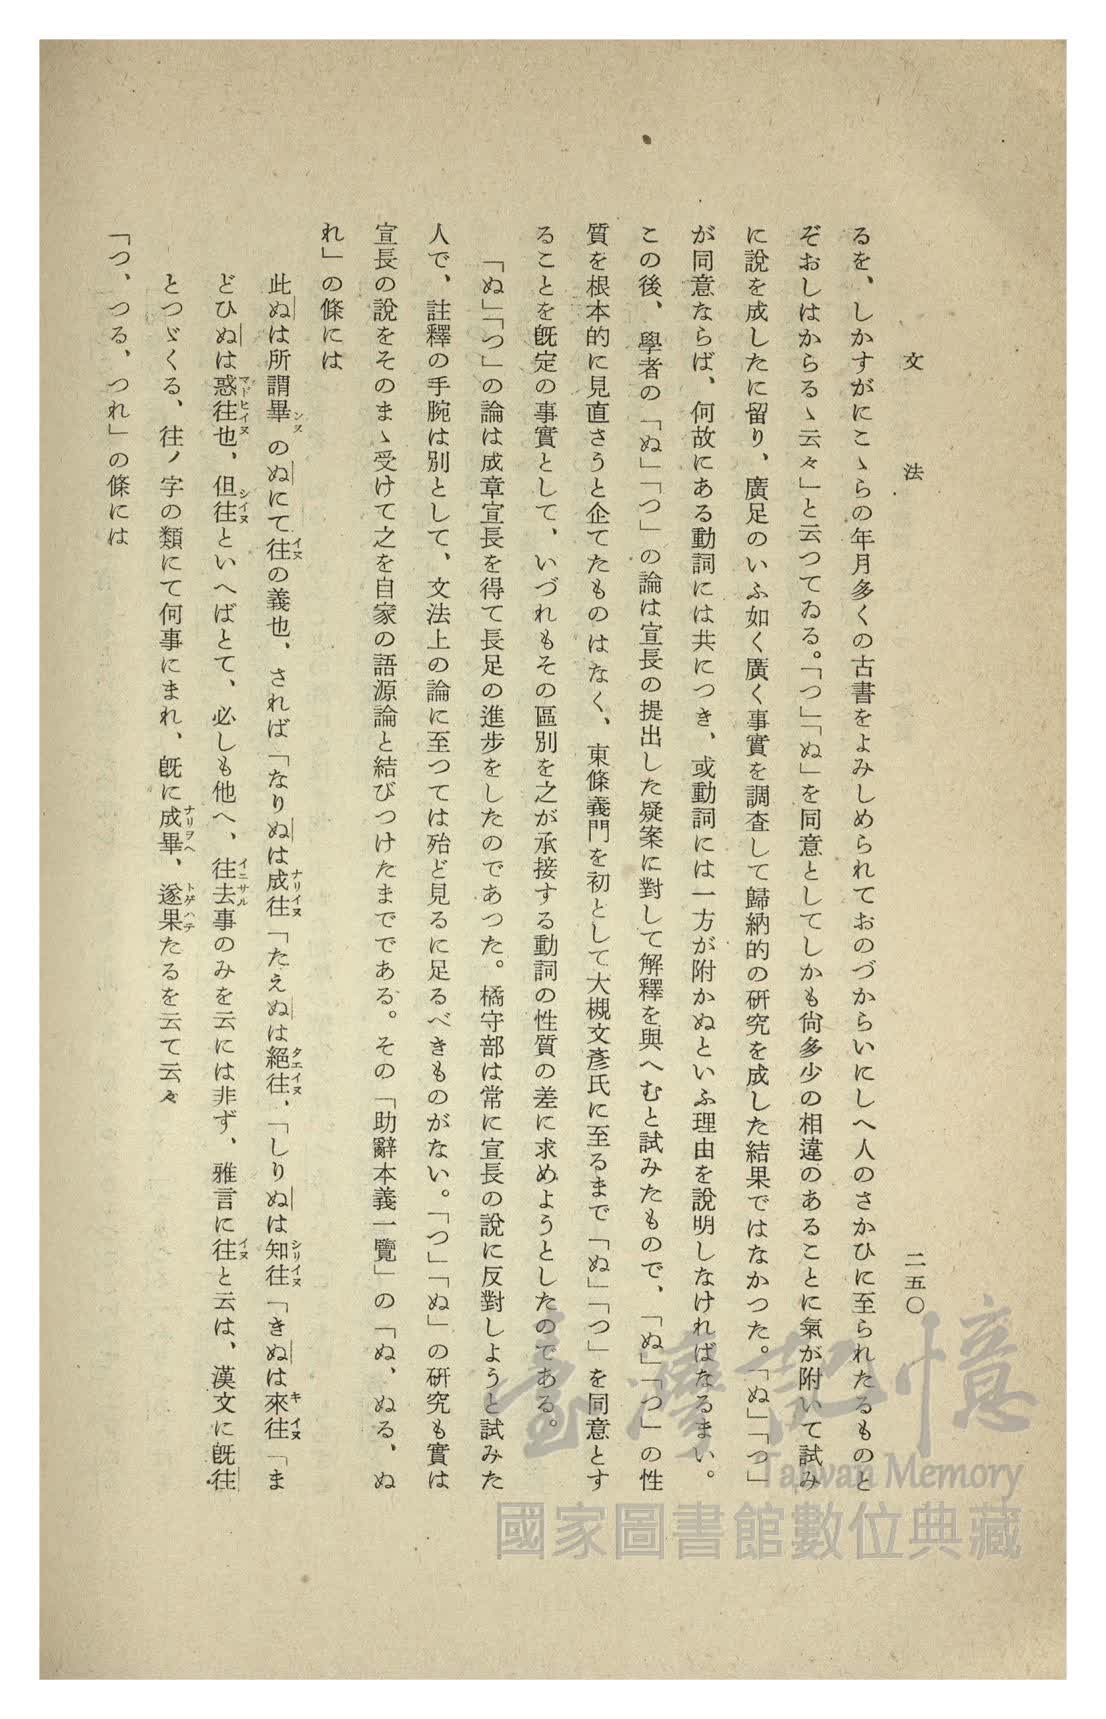 文法
二五〇
るを、しかすがにこゝらの年月多くの古書をよみしめられておのづからいにしへ人のさかひに至られたるものと
ぞおしはからるゝ云々」と云つてゐる。「つ」「ぬ」を同意としてしかも尙多少の相違のあることに氣が附いて試み
に說を成したに留り、廣足のいふ如く廣く事實を調査して歸納的の硏究を成した結果ではなかつた。「ぬ」「つ」
が同意ならば、何故にある動詞には共につき、或動詞には一方が附かぬといふ理由を說明しなければなるまい。
この後、學者の「ぬ」「つ」の論は宣長の提出した疑案に對して解釋を與へむと試みたもので、「ぬ」「つ」の性
質を根本的に見直さうと企てたものはなく、東條義門を初として大槻文彥氏に至るまで「ぬ」「つ」を同意とす
ることを旣定の事實として、いづれもその區別を之が承接する動詞の性質の差に求めようとしたのである。
「ぬ」「つ」の論は成章宣長を得て長足の進步をしたのであつた。橘守部は常に宣長の說に反對しようと試みた
人で、註釋の手腕は別として、文法上の論に至つては殆ど見るに足るべきものがない。「つ」「ぬ」の硏究も實は
宣長の說をそのまゝ受けて之を自家の語源論と結びつけたまでである。その「助辭本義一覽」の「ぬ、ぬる、ぬ
れ」の條には
此ぬは所謂畢ンヌのぬにて往イヌの義也、されば「なりぬは成往ナリイヌ「たえぬは絕往タエイヌ、「しりぬは知往シリイヌ「きぬは來往キイヌ「ま
どひぬは惑往マドヒイヌ也、但往シイヌといへばとて、必しも他へ、往去イニサル事のみを云には非ず、雅言に往イヌと云は、漢文に旣往
とつゞくる、往ノ字の類にて何事にまれ、旣に成畢ナリヲヘ、遂果トゲハテたるを云て云々
「つ、つる、つれ」の條には
臺灣記憶
Taiwan Memory
國家圖書館數位典藏